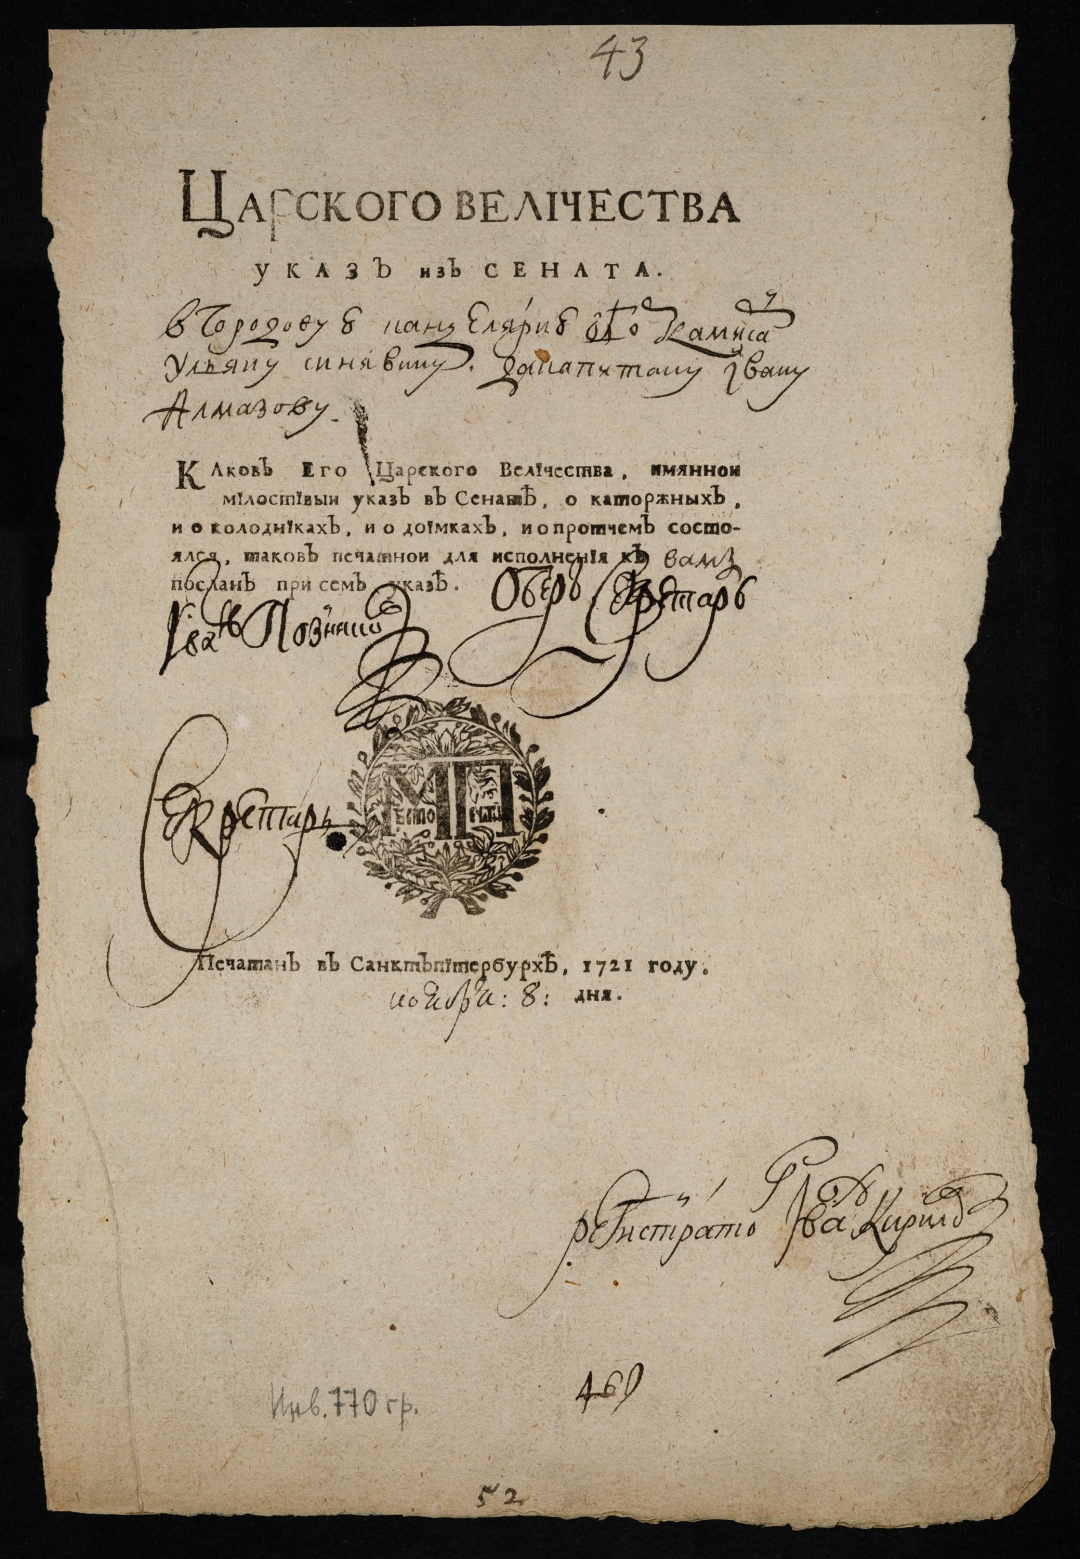 43
ЦАРСКОГО ВЕЛІЧЕСТВА
УКАЗЪ изЪ СЕНАТА.
в Городову ю канцелярию
Ульяну синявину, капитану Івану
Алмазову.
КАковЪ Его Царского Велїчества, имяннои
мїлостївыи указЪ вЪ СенатѢ, о каторжныхЪ,
и о колоднїкахЪ, и о доїмкахЪ, и о протчемЪ состо-
ялся, таковЪ печатнои для исполненїя кЪ вамъ
посланЪ при семЪ указѢ. Оберъ Секретарь
Іванъ Позняков
Секретарь
МП
ѢСТО ЕЧАТИ
ПечатанЪ вЪ СанктЪпїтербурхѢ, 1721 году.
ноября: 8: дня.
регистратор Іван Кирилов
Инв. 770 гр.
52